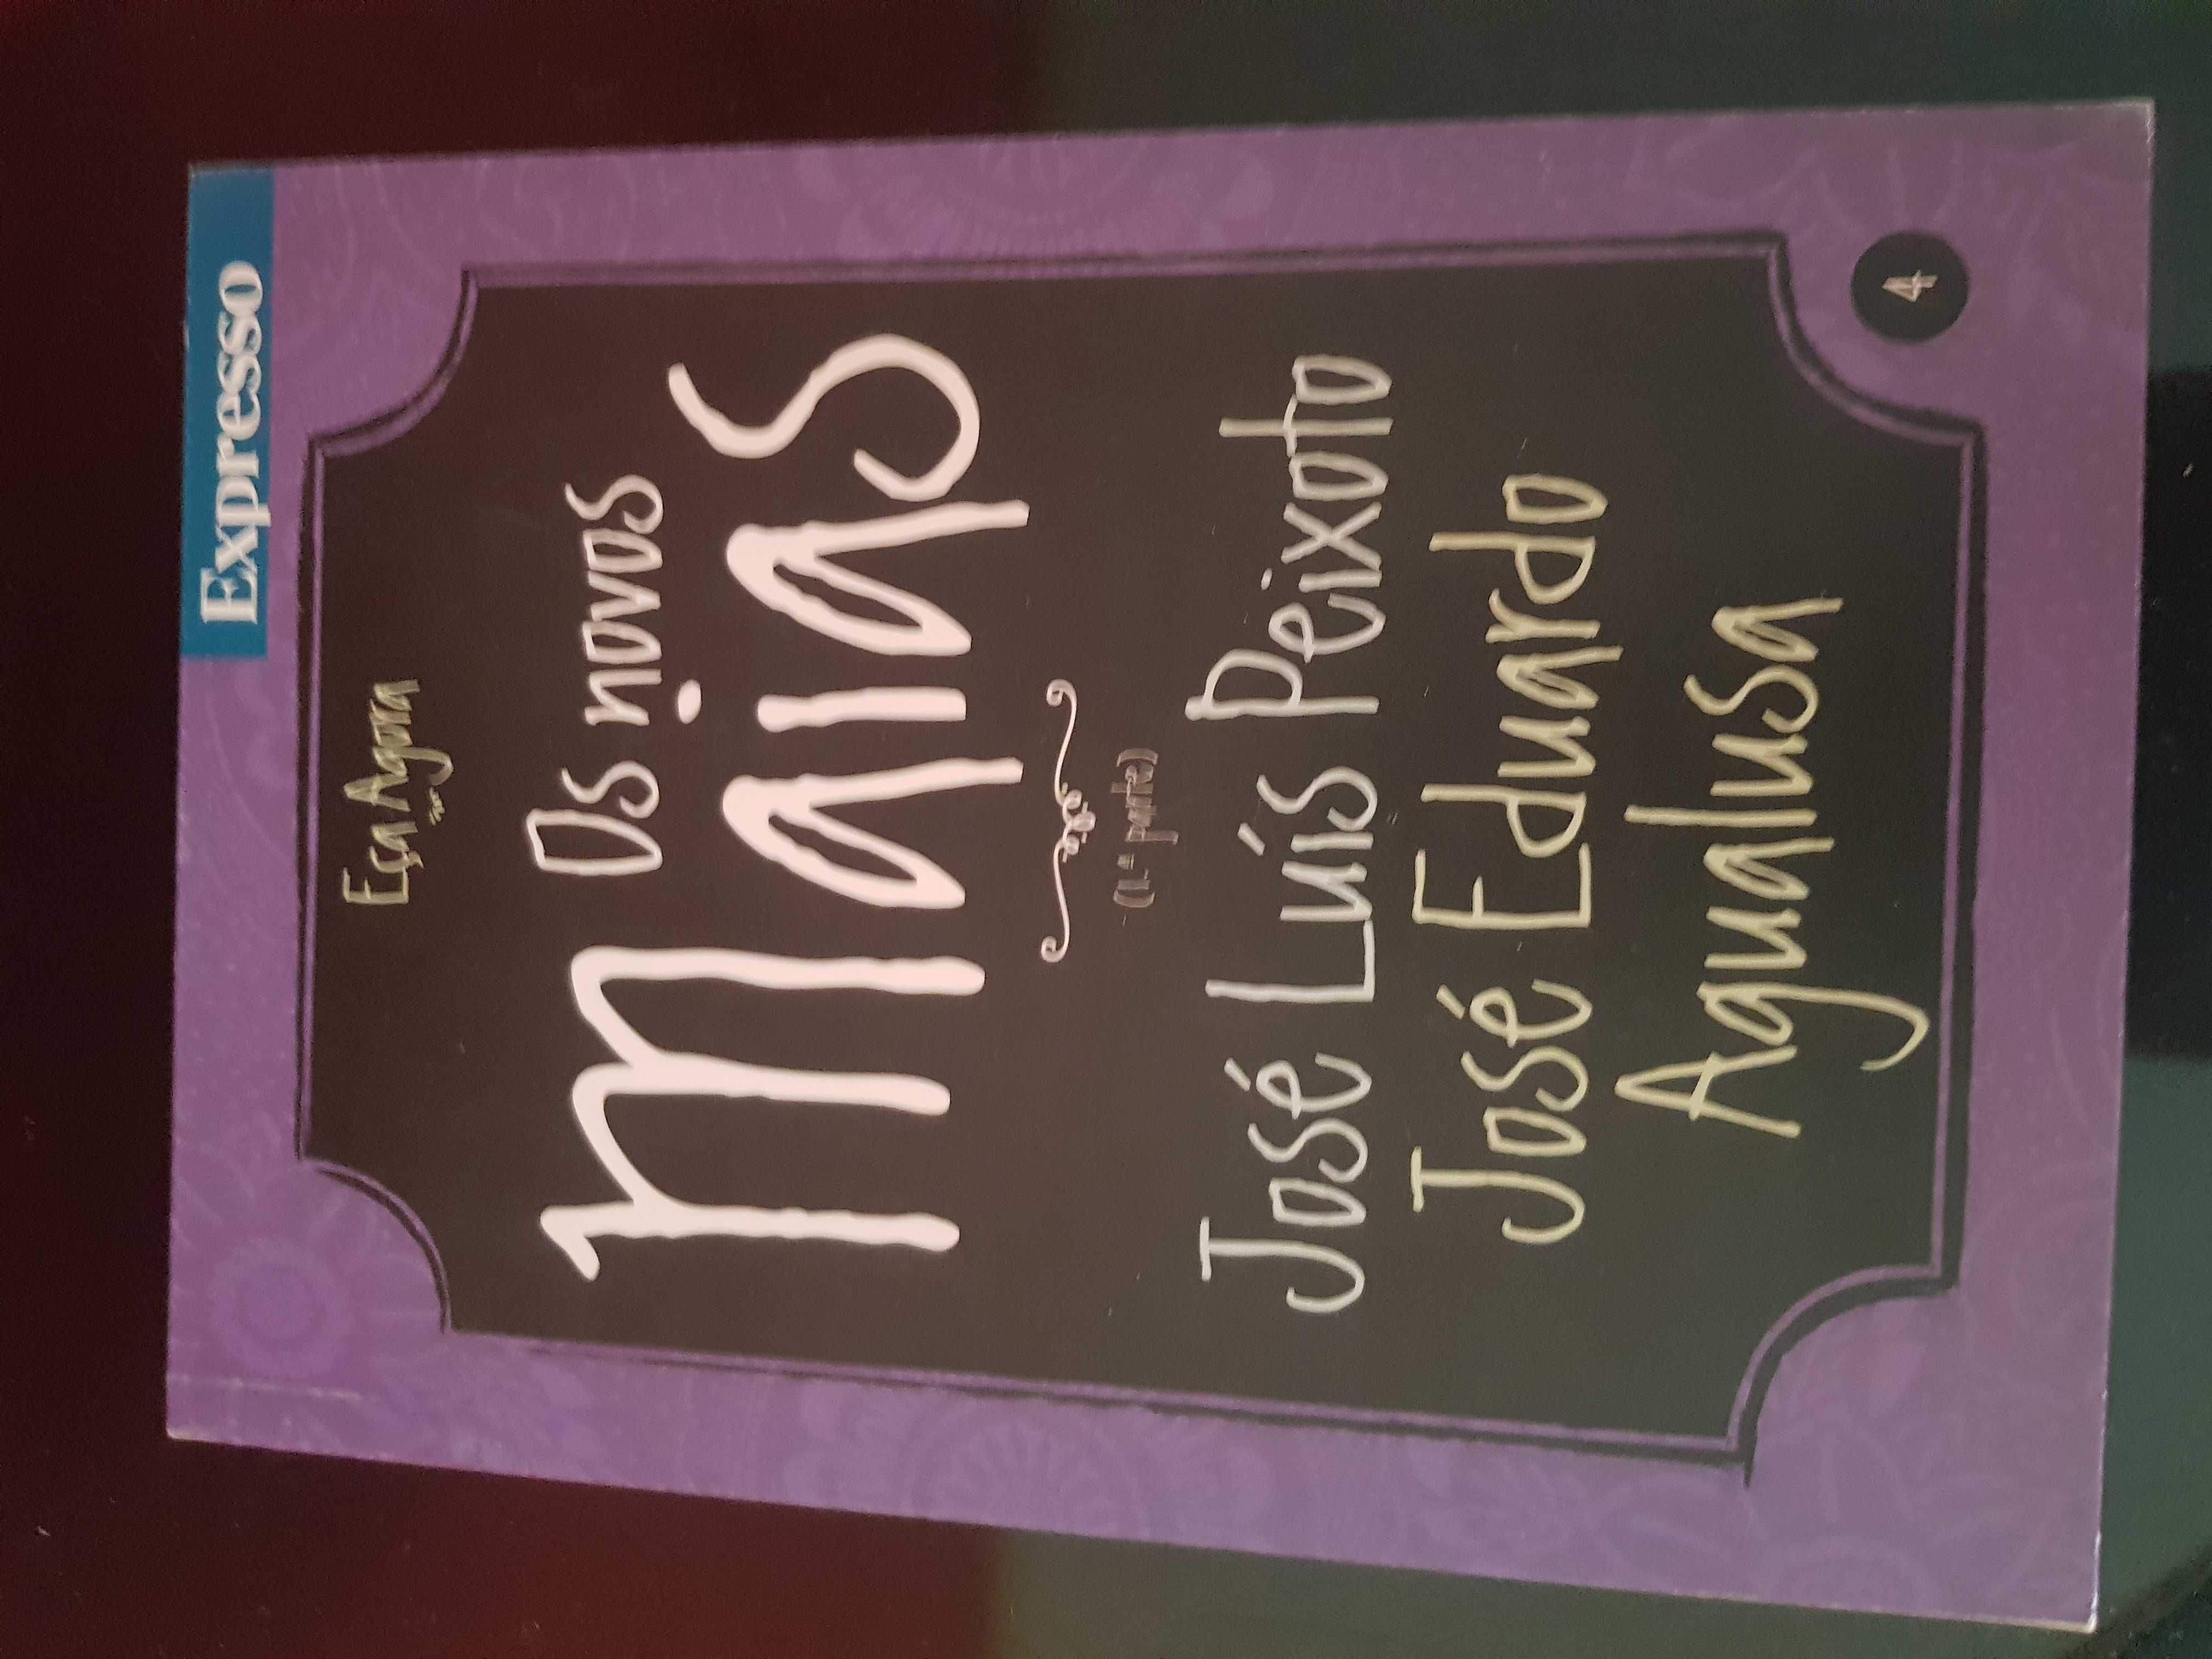 Expresso
Eça Agora
Os novos
maias
(1.ª parte)
José Luís Peixoto
José Eduardo
Agualusa
4